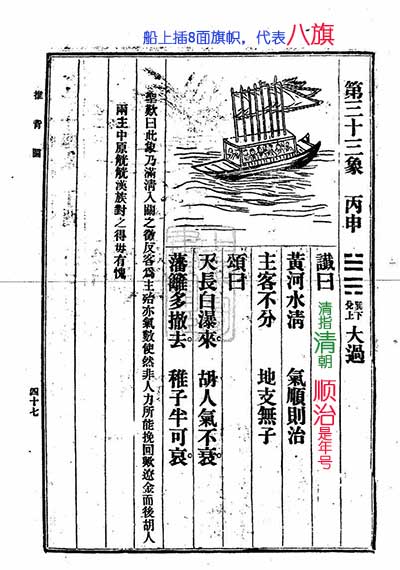 船上插8面旗帜，代表八旗
第三十三象 丙申 巽下兌上 大過
讖曰
清指清朝
顺治是年号
黃河水清 氣順則治
主客不分 地支無子
頌曰
天長白瀑來。 胡人氣不衰。
藩離多撤去。 稚子半可哀。
聖歎曰此象乃滿清入關之徵反客爲主殆亦氣數使然非人力所能挽回歟遼金而後胡人
兩主中原觥觥漢族對之得毋有愧
推背圖
四十七